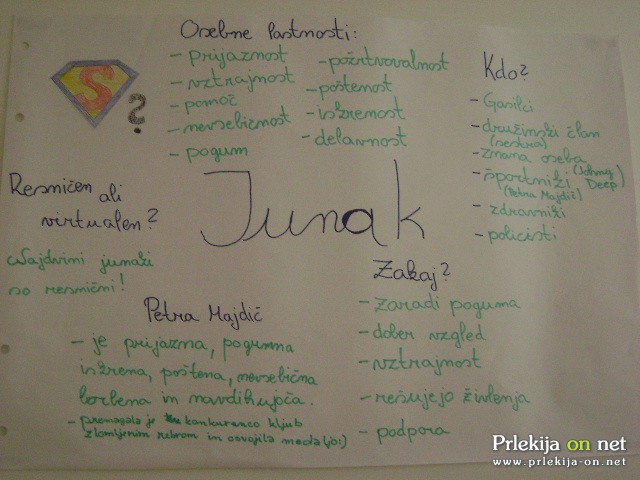 Osebne lastnosti:
- prijaznost
- vztrajnost
- pomoč
- nevsebičnost
- pogum
- požrtvovalnost
- poštenost
- iskrenost
- delavnost
S
?
Kdo?
- Gasilci
- družinski član
(sestra)
- znana oseba
(Johny Deep)
- športniki
(Petra Majdič)
- zdravniki
- policisti
Resničen ali
virtualen?
Wajdvini junaki
so resnični!
Junak
Petra Majdič
- je prijazna, pogumna
iskrena, poštena, nevsebična
borbena in navdihujoča.
- premagala je konkurenco kljub
zlomljenim rebrom in osvojila medaljo:)
Zakaj?
- zaradi poguma
- dober vzgled
- vztrajnost
- rešujejo življenja
- podpora
Prlekija on net
www.prlekija-on.net